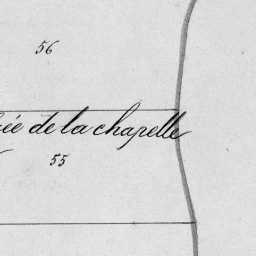 56
de la chapelle
55